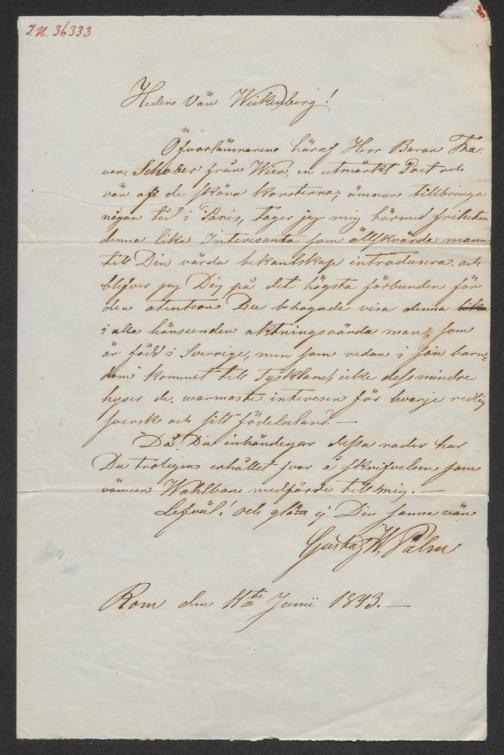 I.N. 36333
Heders Vän Wickenberg!
Öfverlämnaren häraf Herr Baron Fra
von Schober från Wien, en utmärkt Poet och
vän af de sköna konsterna, ämnar tillbringa
någon tid i Paris, tager jag mig härmed friheten
denna lika Interesanta som älskvärda mann
till Din värda bekantskap introducera, och
blifver jag Dig på det högsta förbunden för
den atention Du behagade visa denna lika
i alla hänseenden aktningsvärda man, som
är född i Sverrige, men som redan i sin barn-
dom kommit till Tyskland, icke dessmindre
hyser de warmaste interesse för hvarje redlig
svensk och sitt födelseland.—
Då Du inhändigar dessa rader har
Du troligen erhållit svar å skrifvelsen som
vännen Wahlbom medförde till mig.—
Lefväl! och glöm ej Din sanna vän
Gustaf W. Palm
Rom den 11te Junii 1843.—